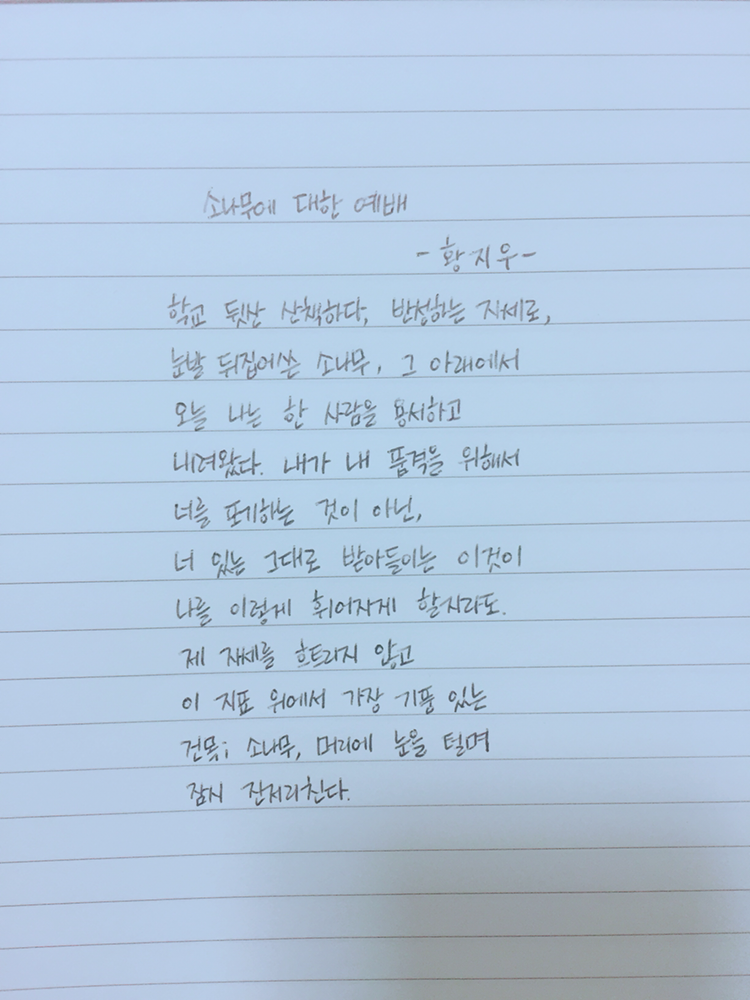 소나무에 대한 예배
- 황지우 -
학교 뒷산 산책하다, 반성하는 자세로,
눈발 뒤집어쓴 소나무, 그 아래에서
오늘 나는 한 사람을 용서하고
내려왔다. 내가 내 품격을 위해서
너를 포기하는 것이 아닌,
너 있는 그대로 받아들이는 이것이
나를 이렇게 휘어지게 할지라도.
제 자세를 흐트리지 않고
이 지표 위에서 가장 기품 있는
건목; 소나무, 머리에 눈을 털며
잠시 진저리친다.